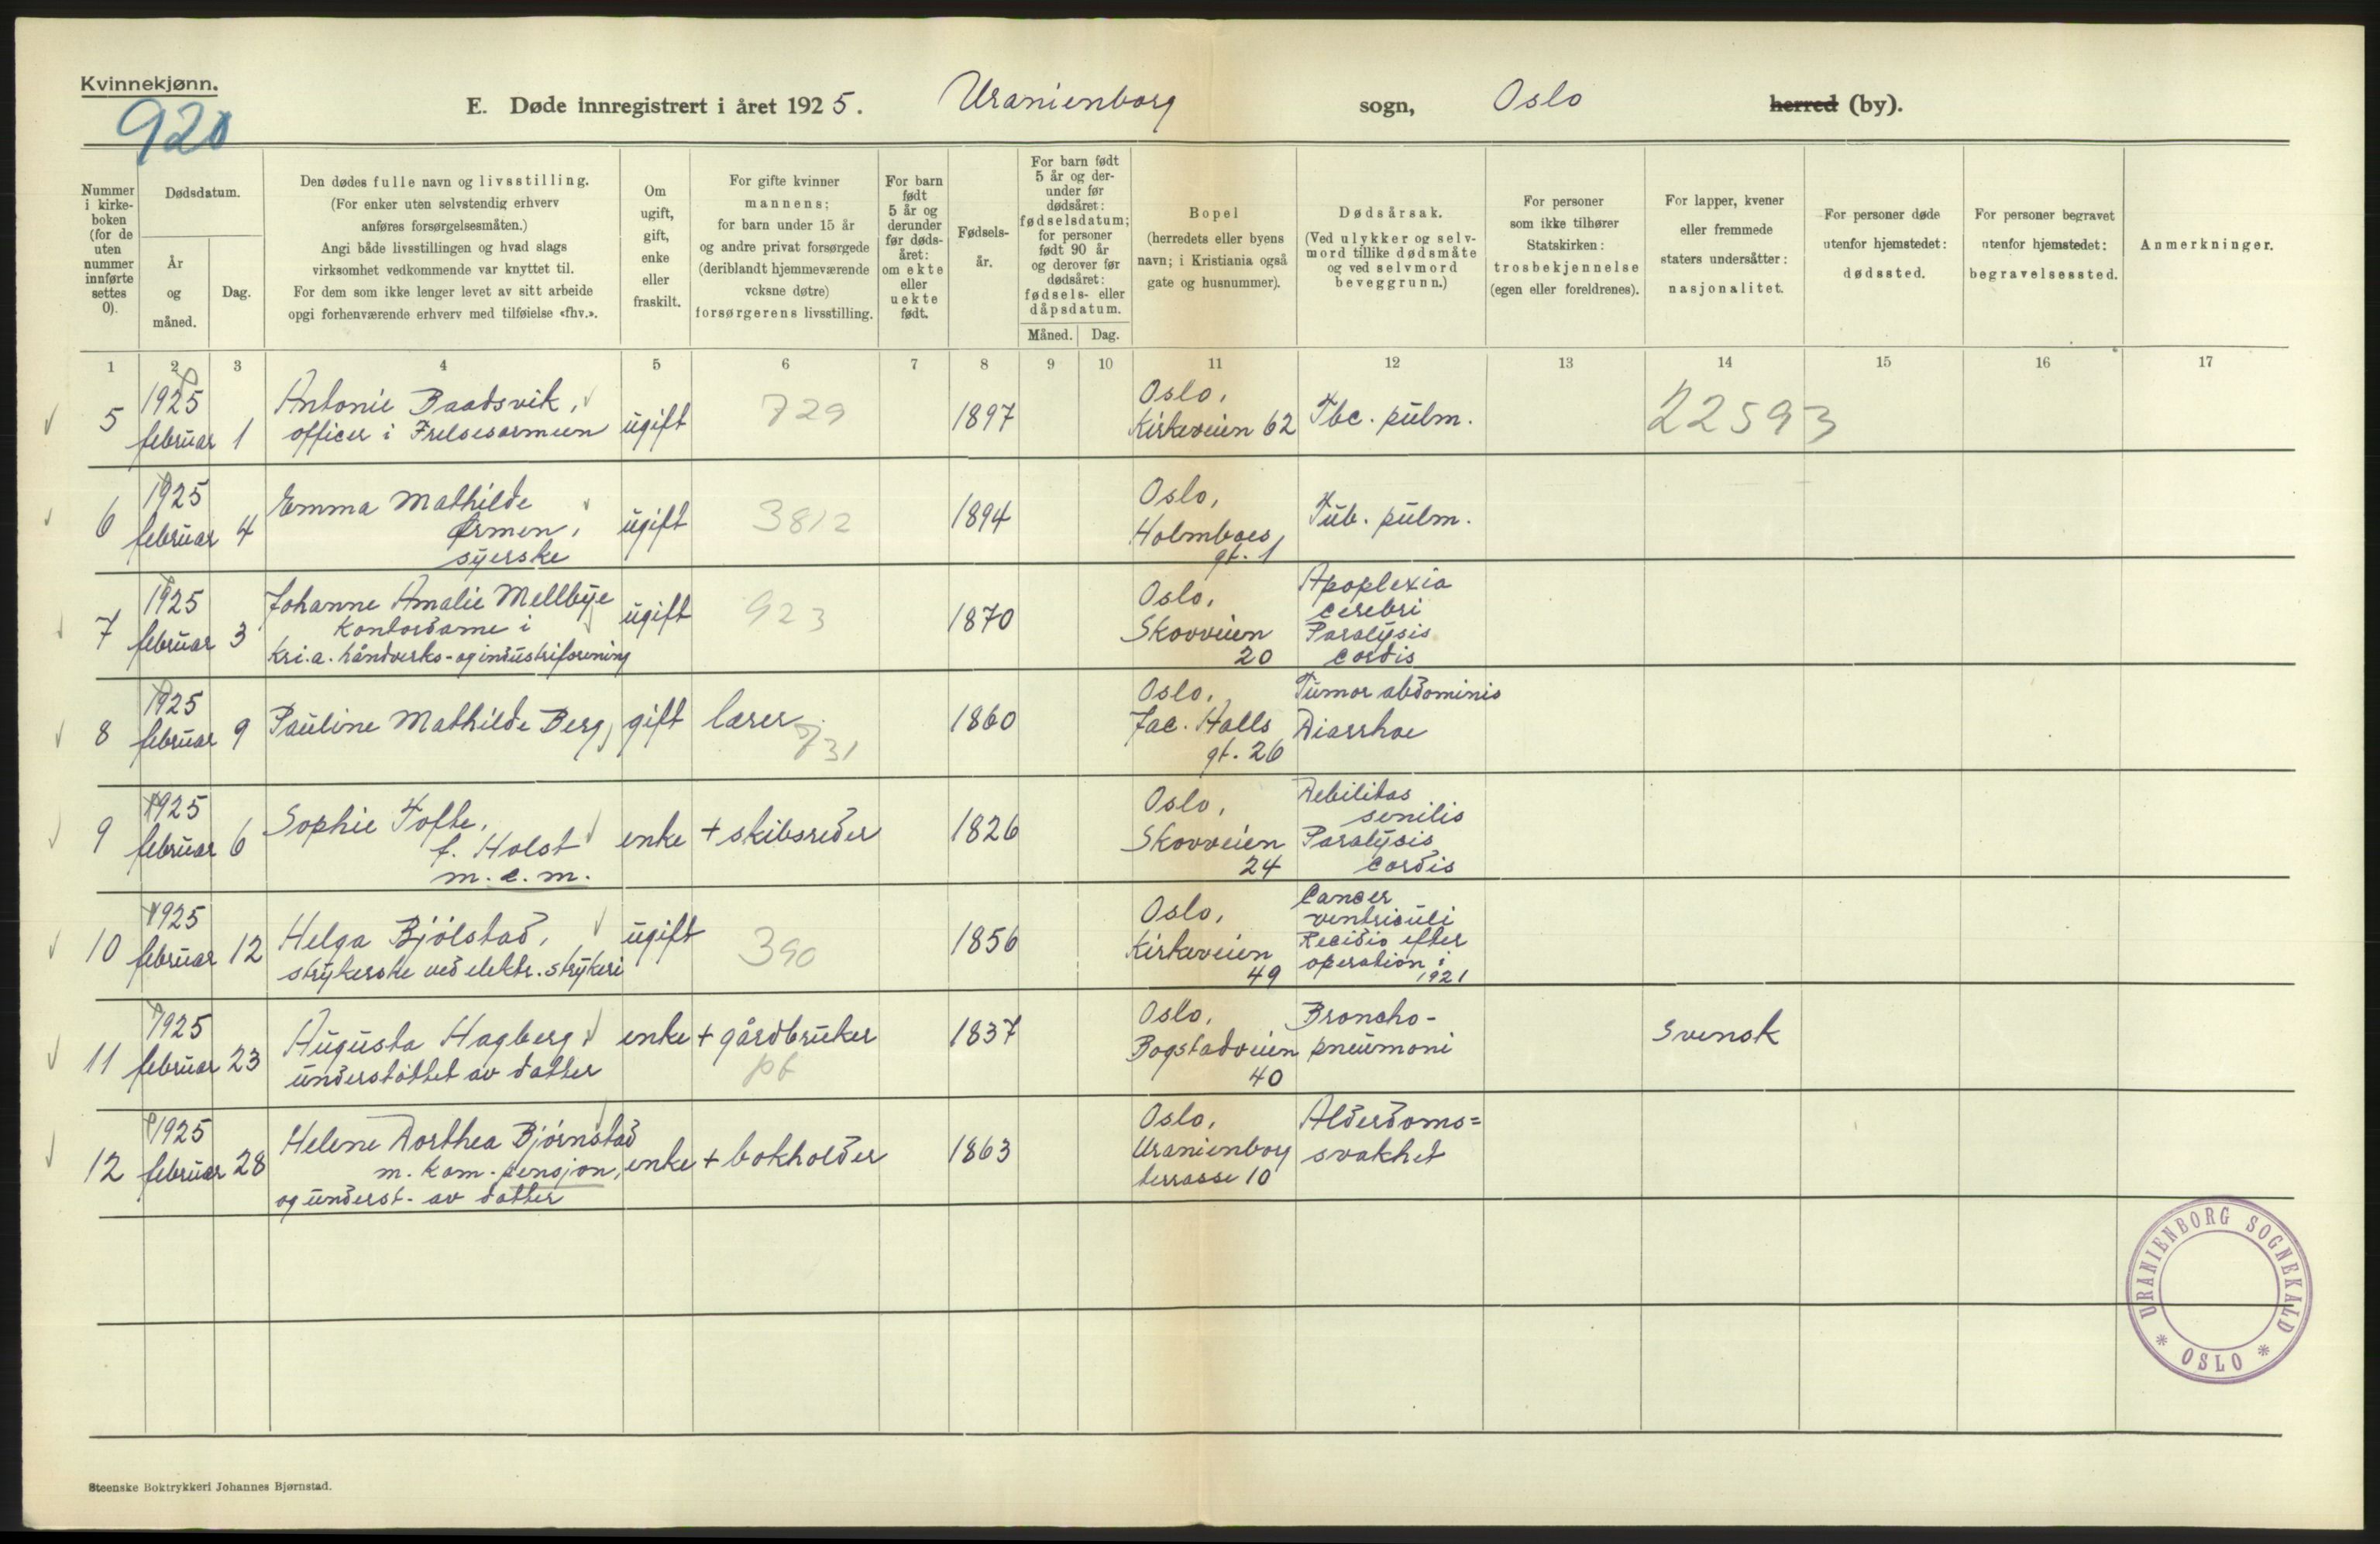 Kvinnekjønn.
920
E. Døde innregistrert i året 1925. Uranienborg sogn, Oslo herred (by).
Nummer i kirke-boken (for de uten nummer innførte settes 0).
Dødsdatum.
År og måned.
Dag.
Den dødes fulle navn og livsstilling.
(For enker uten selvstendig erhverv
anføres forsørgelsesmåten.)
Angi både livsstillingen og hvad slags
virksomhet vedkommende var knyttet til.
For dem som ikke lenger levet av sitt arbeide
opgi forhenværende erhverv med tilføielse «fhv.».
Om ugift, gift, enke eller fraskilt.
For gifte kvinner
mannens;
for barn under 15 år
og andre privat forsørgede
(deriblandt hjemmeværende
voksne døtre)
forsørgerens livsstilling.
For barn født 5 år og derunder før døds-året: om ekte eller uekte født.
Fødsels-år.
For barn født
5 år og der-
under før
dødsåret:
fødselsdatum;
for personer
født 90 år
og derover før
dødsåret:
fødsels- eller
dåpsdatum.
Måned. Dag.
Bopel
(herredets eller byens
navn; i Kristiania også
gate og husnummer).
Dødsårsak.
(Ved ulykker og selv-
mord tillike dødsmåte
og ved selvmord
beveggrunn.)
For personer
som ikke tilhører
Statskirken:
trosbekjennelse
(egen eller foreldrenes).
For lapper, kvener
eller fremmede
staters undersåtter:
nasjonalitet.
For personer døde
utenfor hjemstedet:
dødssted.
For personer begravet
utenfor hjemstedet:
begravelsessted.
Anmerkninger.
1 2 3 4 5 6 7 8 9 10 11 12 13 14 15 16 17
5 1925 februar 1 Antonie Baadsvik, officer i Frelsesarmeen ugift 729 1897 Oslo, Kirkeveien 62 Tbc. pulm. 22593
6 1925 februar 4 Emma Mathilde Ormen, syerske ugift 3812 1894 Oslo, Holmboes gt. 1 Tub. pulm.
7 1925 februar 3 Johanne Amalie Mellbye kontordame i Kri.a. håndverks-og industriforening ugift 923 1870 Oslo, Skovveien 20 Apoplexia cerebri Paralysis cordis
8 1925 februar 9 Pauline Mathilde Berg, gift lærer 731 1860 Oslo, Jac. Halls gt. 26 Tumor abdominis Diarrhoe
9 1925 februar 6 Sophie Tofte, f. Holst m. e. m. enke + skibsreder 1826 Oslo, Skovveien 24 Debilitas senilis Paralysis cordis
10 1925 februar 12 Helga Bjölstad, strykerske ved elektr. strykeri ugift 390 1856 Oslo, Kirkeveien 49 Cancer ventriculi Recidiv efter operation i 1921
11 1925 februar 23 Augusta Hagberg understöttet av datter enke + gårdbruker pf 1837 Oslo, Bogstadveien 40 Broncho-pneumoni Svensk
12 1925 februar 28 Helene Dorthea Björnstad m. kom. pensjon, og underst. av datter enke + bokholder 1863 Oslo, Uranienborg terrasse 10 Alderdoms=svakhet
URANIENBORG SOGNEKALD * OSLO *
Steenske Boktrykkeri Johannes Bjørnstad.